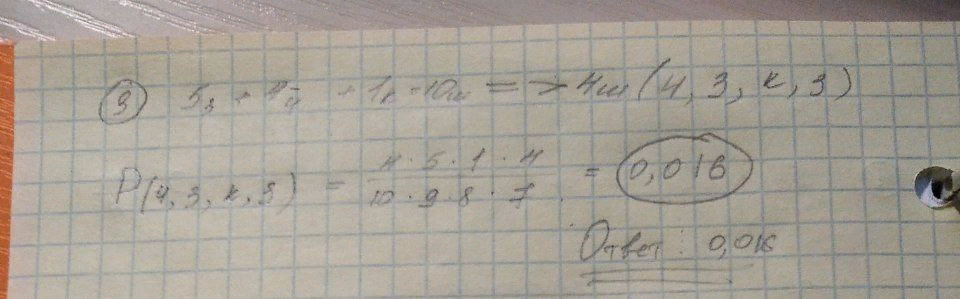 ③ 5з + 4ч + 1к = 10ш => 4ш (ч, з, к, з)
P(ч, з, к, з) = 4 · 5 · 1 · 4 / 10 · 9 · 8 · 7 = 0,016
Ответ: 0,016